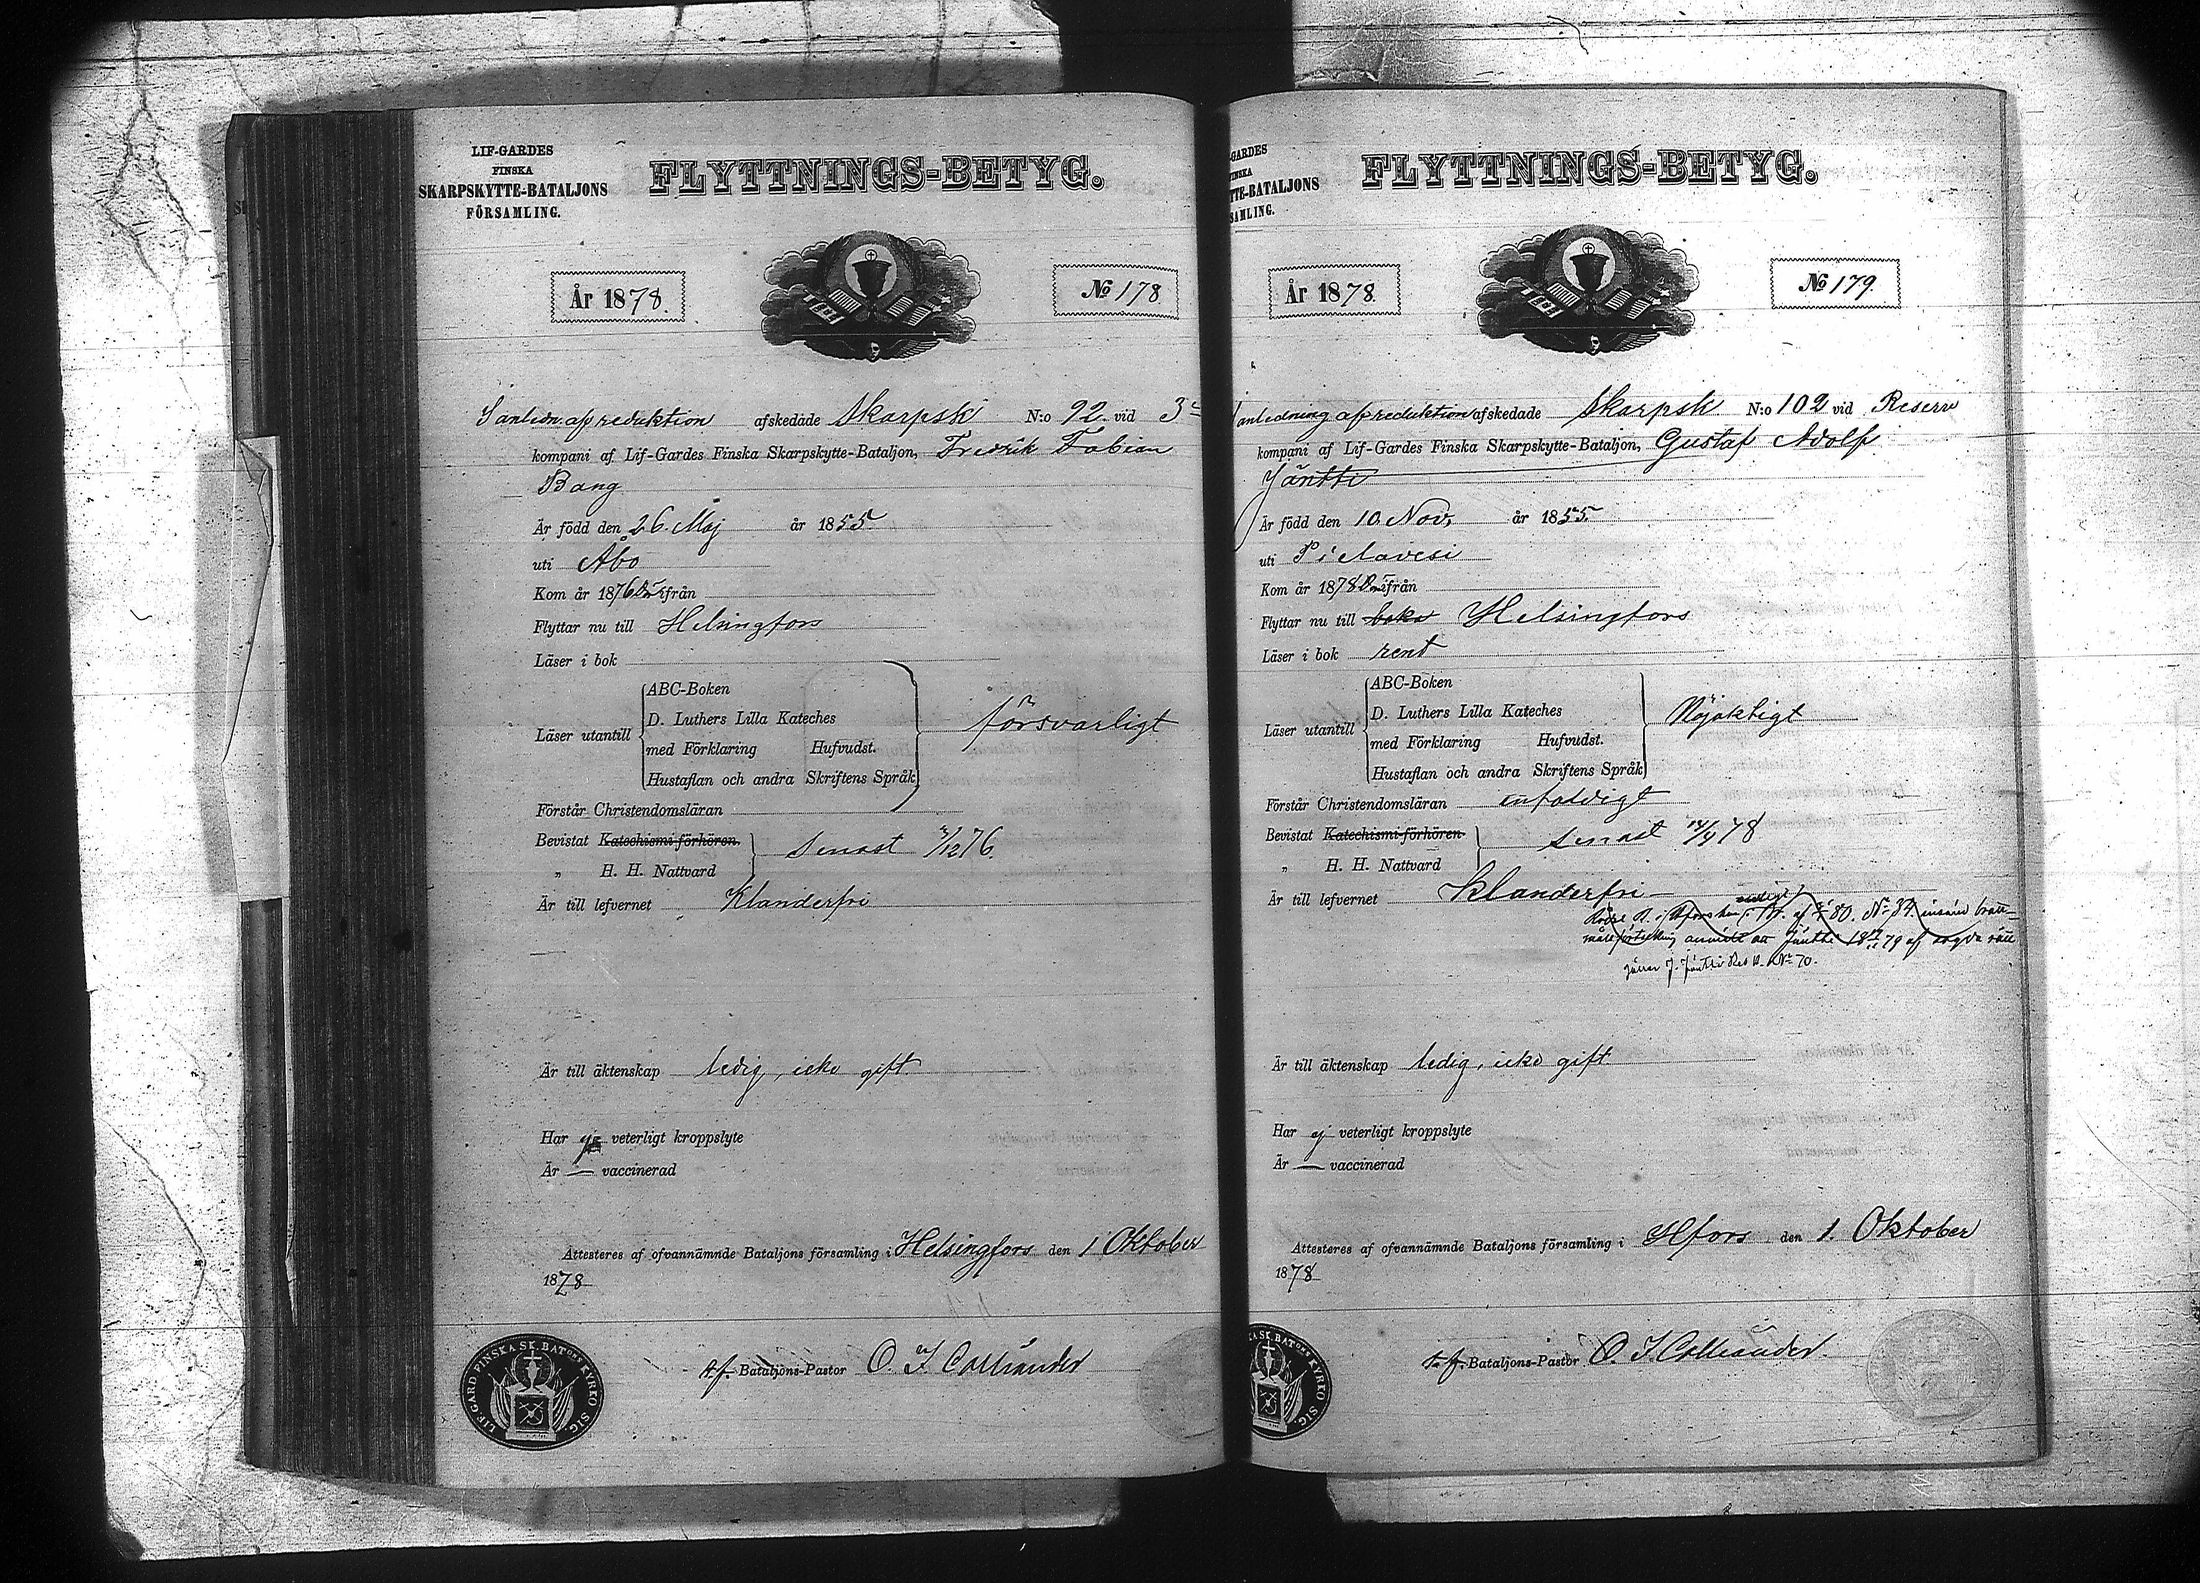 LIF-GARDES
FINSKA
SKARPSKYTTE-BATALJONS
FÖRSAMLING.
FLYTTNINGS-BETYG.
År 1878.
No 178
afskedade Skarpsk N:o 92 vid 3
kompani af Lif-Gardes Finska Skarpskytte-Bataljon, Fredrik Fabian
Bang
Är född den 26. Maj år 1855
uti Åbo
Kom år 1876 ifrån
Flyttar nu till Helsingfors
Läser i bok
Läser utantill
ABC-Boken
D. Luthers Lilla Kateches
med Förklaring Hufvudst.
Hustaflan och andra Skriftens Språk
försvarligt
Förstår Christendomsläran
Bevistat Katechismi-förhören
„ H. H. Nattvard
senast /12 76.
Är till lefvernet Klanderfri
Är till äktenskap ledig, icke gift
Har veterligt kroppslyte
Är — vaccinerad
Attesteres af ofvannämnde Bataljons församling i Helsingfors den 1 Oktober
1878
t.f. Bataljons-Pastor O. F. Colliander
LIF-GARD. FINSKA SK. BATONS KYRKO SIG.
GARDES
INSKA
TTE-BATALJONS
SAMLING.
FLYTTNINGS-BETYG.
År 1878.
No 179.
anledning af reduktion afskedade Skarpsk N:o 102 vid Reserv
kompani af Lif-Gardes Finska Skarpskytte-Bataljon, Gustaf Adolf
Jäntti
Är född den 10. Nov. år 1855.
uti Pielavesi
Kom år 1878 ifrån
Flyttar nu till Helsingfors
Läser i bok rent
Läser utantill
ABC-Boken
D. Luthers Lilla Kateches
med Förklaring Hufvudst.
Hustaflan och andra Skriftens Språk
Nöjaktigt
Förstår Christendomsläran enfaldigt
Bevistat Katechismi-förhören
„ H. H. Nattvard
senast 78
Är till lefvernet Klanderfri
Är till äktenskap ledig, icke gift
Har ej veterligt kroppslyte
Är — vaccinerad
Attesteres af ofvannämnde Bataljons församling i Hfors den 1. Oktober
1878
t.f. Bataljons-Pastor O. F. Colliander.
KA SK. BATONS KYRKO SIG.